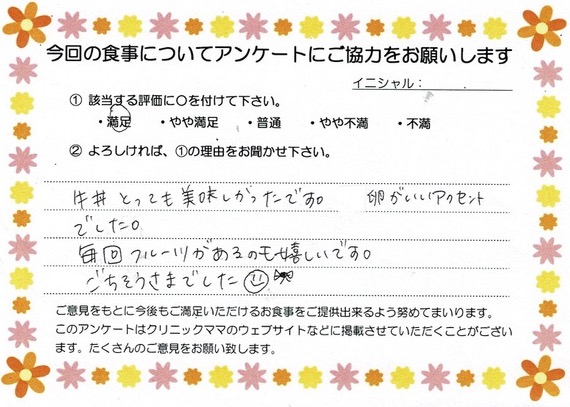 今回の食事についてアンケートにご協力をお願いします
イニシャル：
① 該当する評価に〇を付けて下さい。
・満足　・やや満足　・普通　・やや不満　・不満
② よろしければ、①の理由をお聞かせ下さい。
牛丼とっても美味しかったです。　卵がいいアクセント
でした。
毎回フルーツがあるのも嬉しいです。
ごちそうさまでした
ご意見をもとに今後もご満足いただけるお食事をご提供出来るよう努めてまいります。
このアンケートはクリニックママのウェブサイトなどに掲載させていただくことがござい
ます。たくさんのご意見をお願い致します。